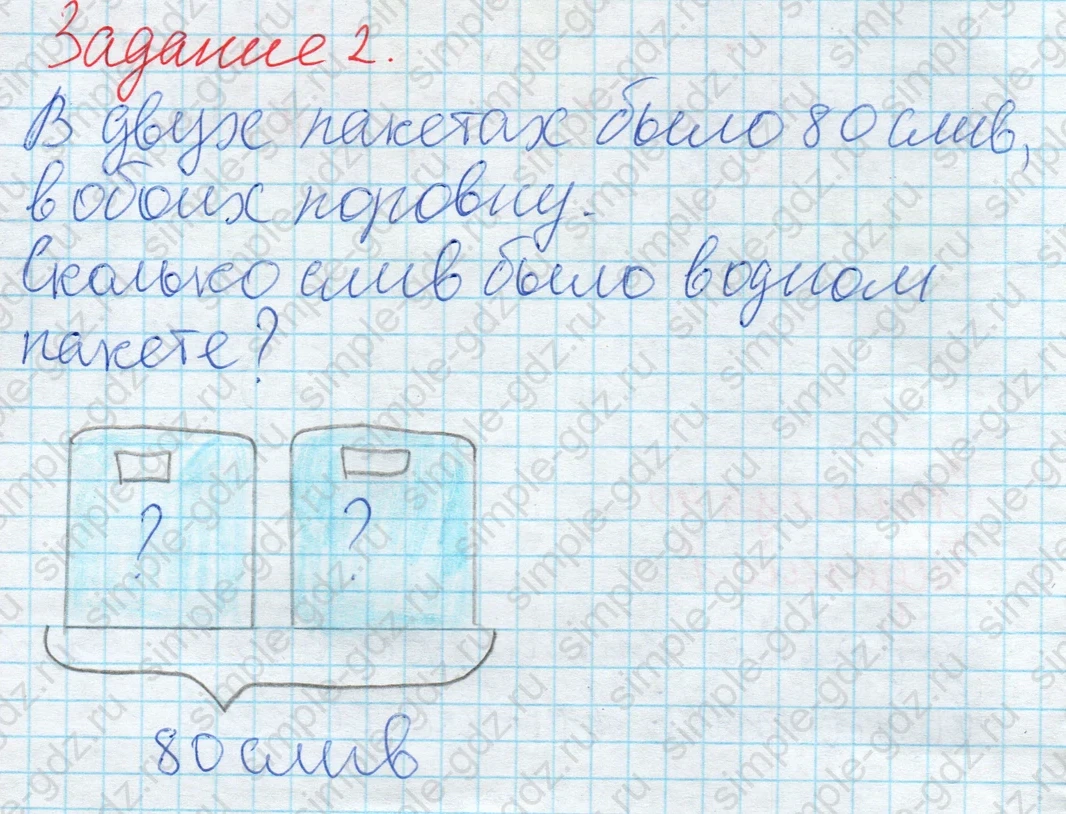 Задание 2.
В двух пакетах было 80 слив,
в обоих поровну.
Сколько слив было в одном
пакете?
? ?
80 слив
simple-gdz.ru